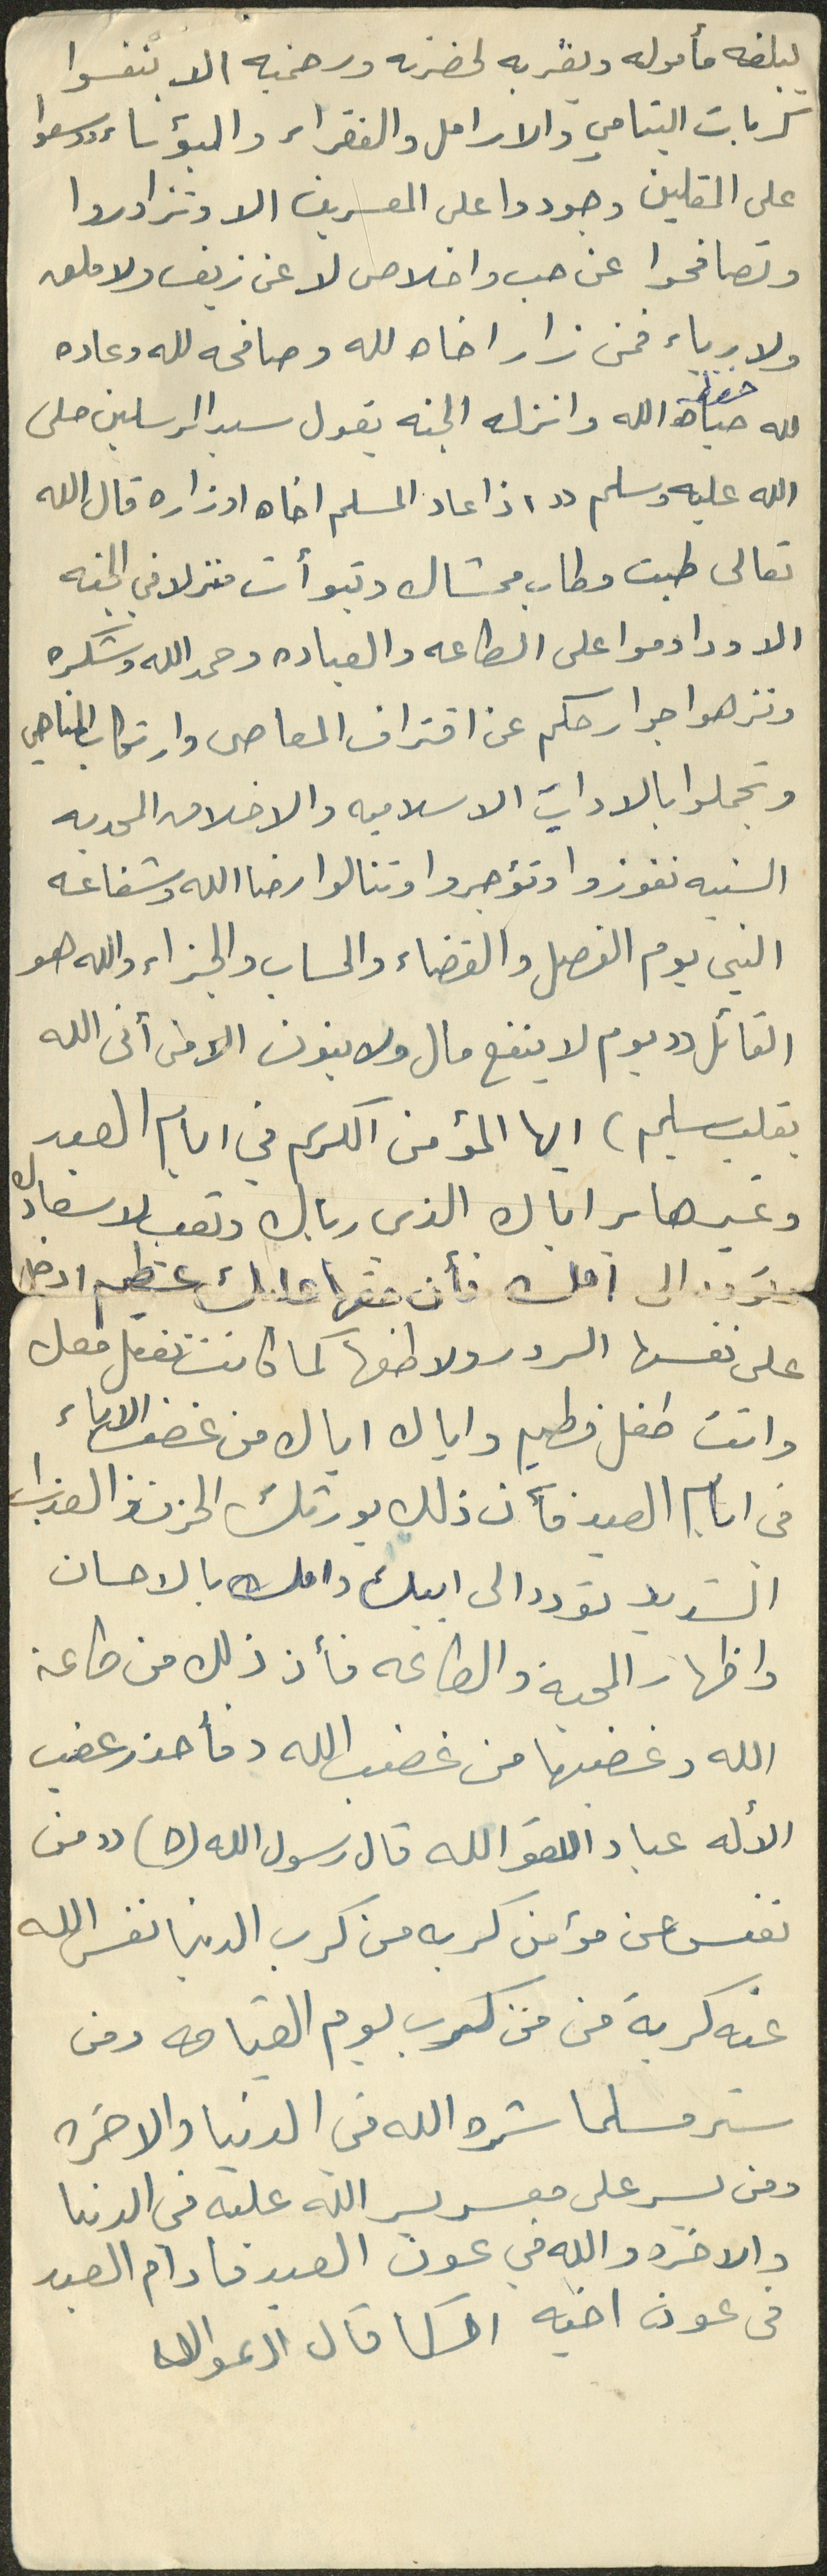 ليبلغه مأموله ويقربه لحضرته ورحمته الا بنفسوا
كربات اليتامي والارامل والفقراء والبؤساء ووسعوا
على المقلين وجودوا على المعسرين الا وتزاوروا
وتصافحوا عن حب واخلاص لا عن زيف ولا ملق
ولا رياء فمن زار اخاه لله وصافحه لله وعاده
لله حباه الله وانزله الجنه يقول سيد المرسلين صلى
الله عليه وسلم ((اذا عاد المسلم اخاه او زاره قال الله
تعالى طبت وطاب ممشاك وتبوأت منزلا في الجنه
الا وداوموا على الطاعه والعباده وحمد الله وشكره
ونزهوا جوارحكم عن اقتراف المعاصى وارتكاب المناهي
وتجملوا بالاداب الاسلاميه والاخلاق المحمديه
السنيه تفوزوا وتؤجروا وتنالوا رضا الله وشفاعه
النبي يوم الفصل والقضاء والحساب والجزاء والله هو
القائل ((يوم لا ينفع مال ولا بنون الا من أتى الله
بقلب سليم) ايها المؤمن الكريم في ايام العيد
وغيرها بر اباك الذي رباك وتعب لاسعادك
الى امك فأن حقها عليك عظيم ادخل
على نفسها السرور ولاطفها كما كانت تفعل معك
وانت طفل فطيم واياك اياك من غضب الاباء
في ايام العيد فأن ذلك يورثك الحزن والعذاب
الشديد تودد الى ابيك وامك بالاحسان
واظهار المحبة والطاعه فأن ذلك من طاعة
الله وغضبها من غضب الله فأحذر غضب
الأله عباد الله اتقوا الله قال رسول الله (ص) ((من
نفس عن مؤمن كربه من كرب الدنيا نفس الله
عنه كربة من من كرب يوم القيامه ومن
ستر مسلما ستره الله في الدنيا والاخره
ومن يسر على معسر يسر الله عليه في الدنيا
والاخره والله في عون العبد مادام العبد
في عون اخيه او كما قال ادعوا الله